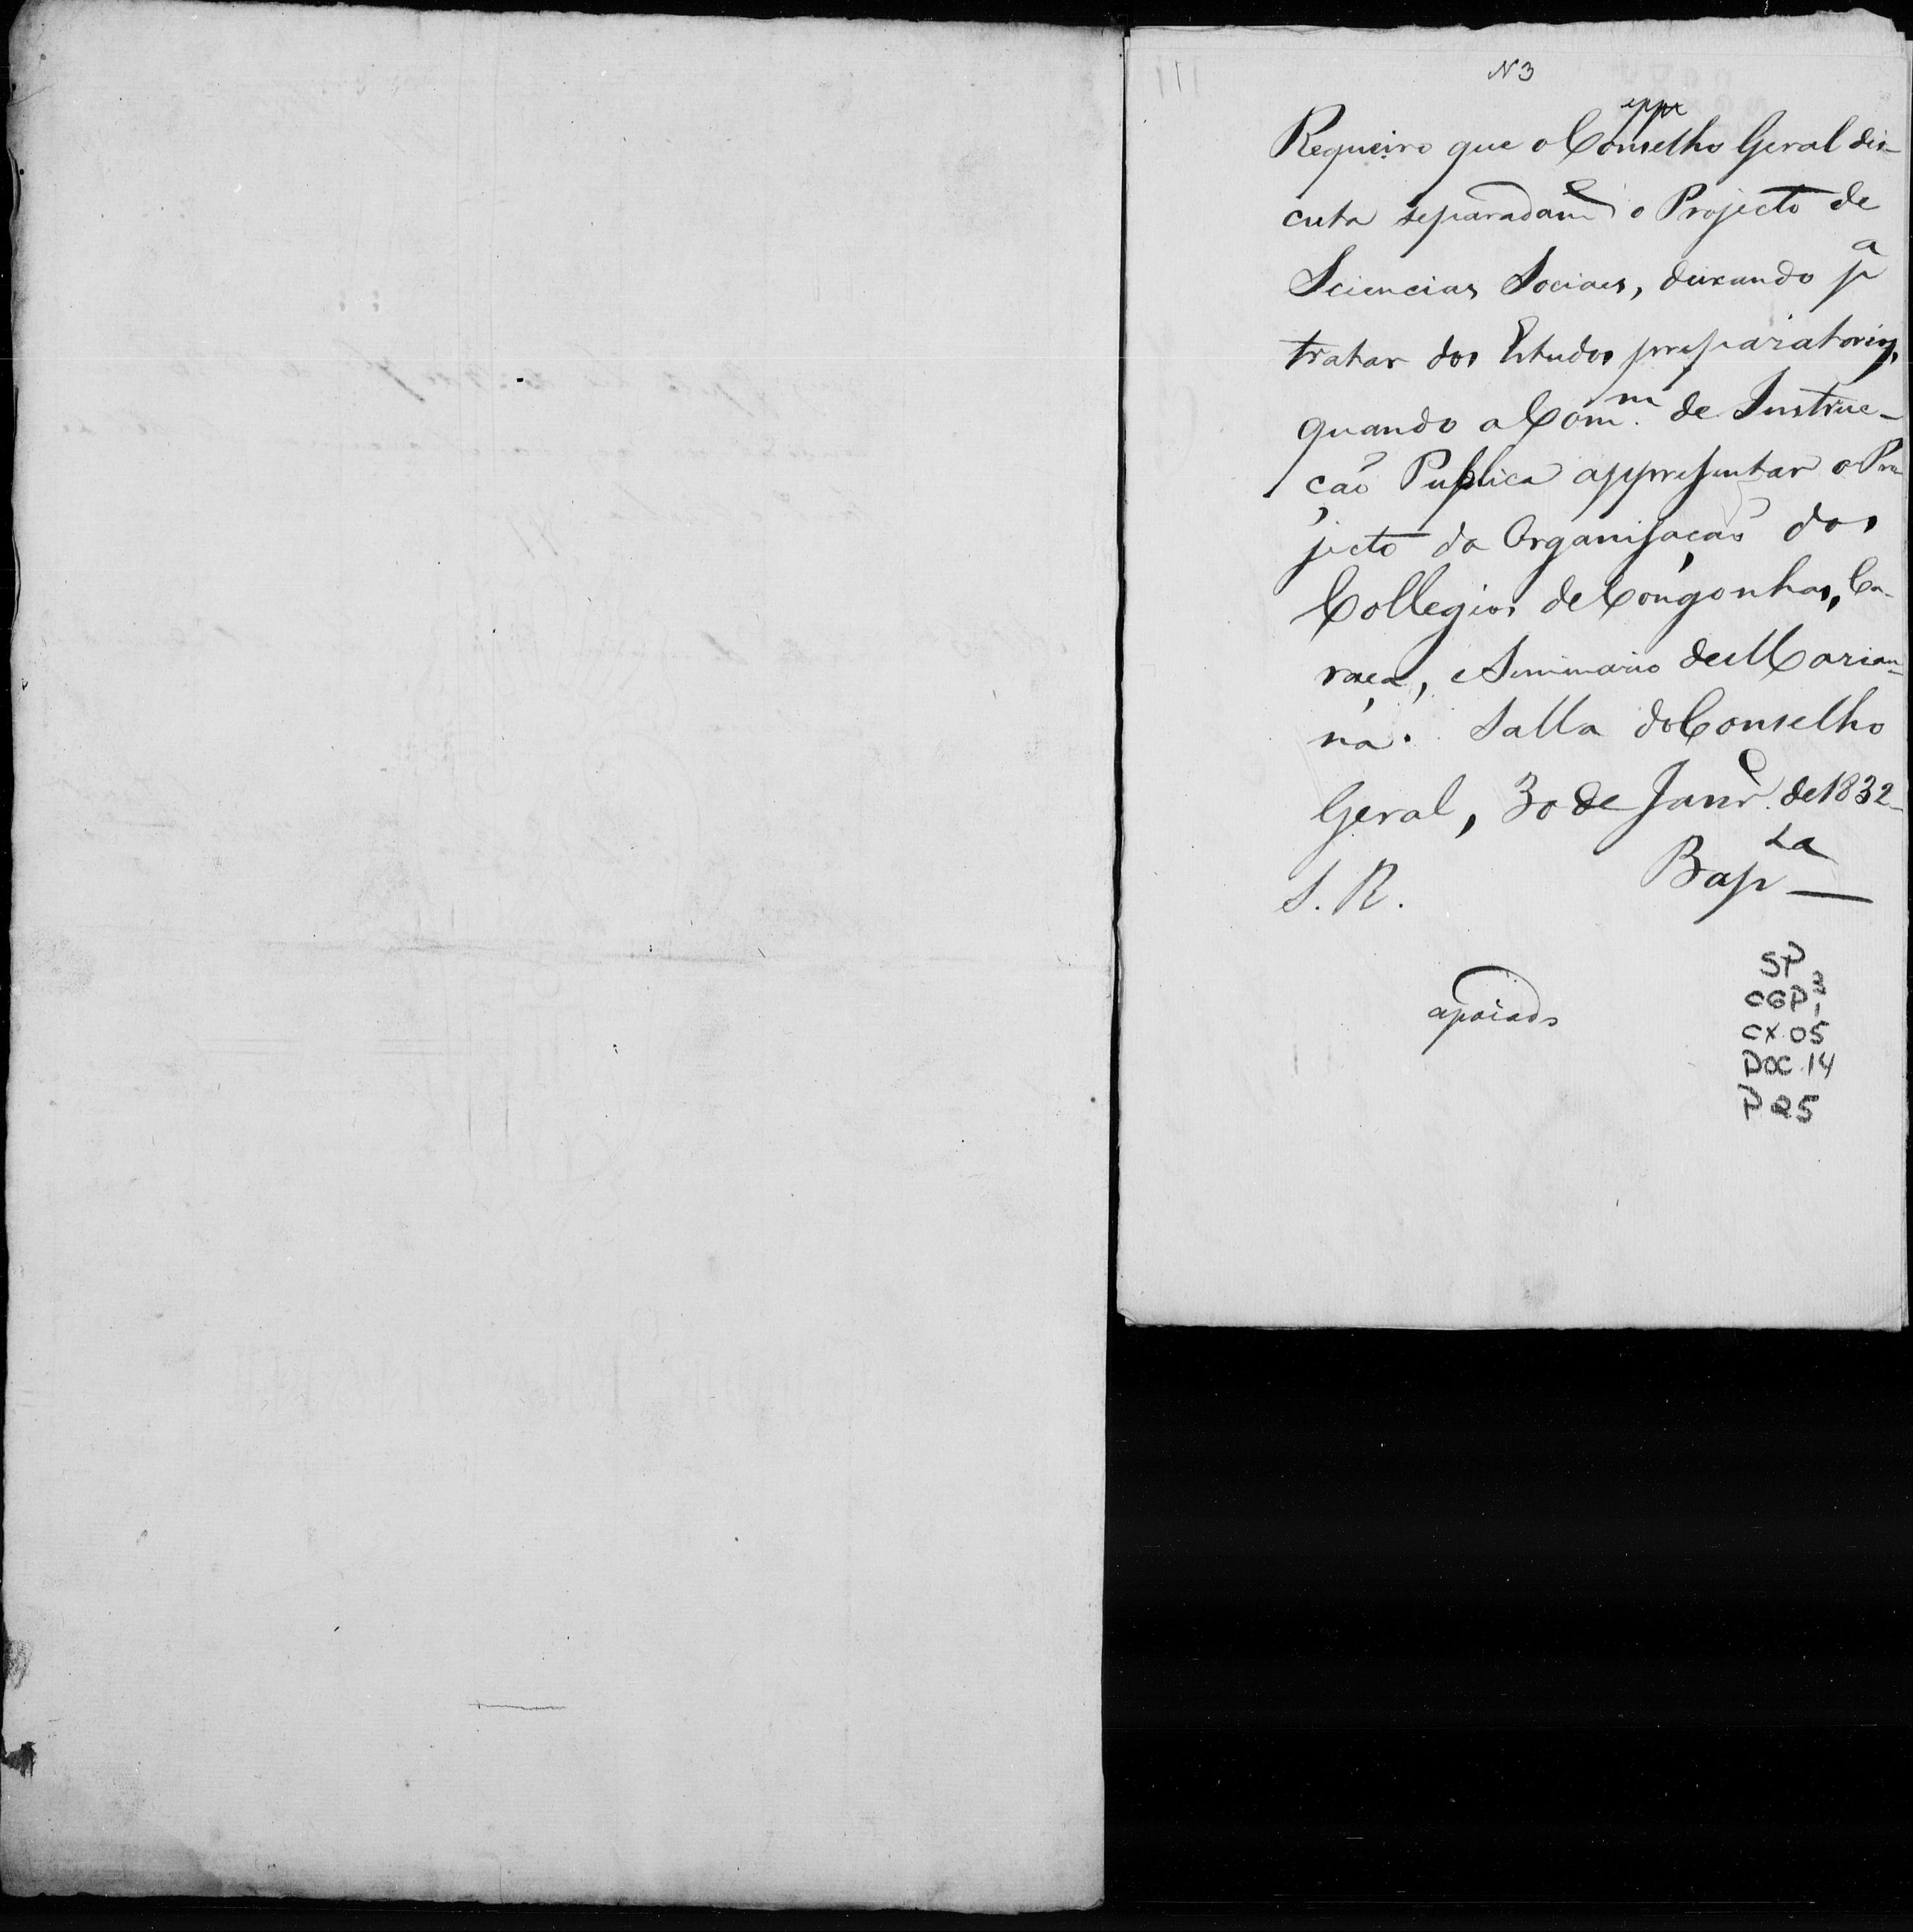 N 3
Requeiro que o Conselho Geral dis-
cuta separadam.e o Projecto de
Sciencias Sociaes, deixando p.a
tratar dos Estudos preparatorios,
quando a Com.m de Instruc-
ção Publica appresentar o Pro-
jecto da Organisação dos
Collegios de Congonhas, Ca-
raça, e Seminario de Marian-
na. Salla do Conselho
Geral, 30 de Janr.o de 1832
Bap.ta
S. R.
apoiado
SP
CGP 3
1
CX. 05
DOC. 14
P 25